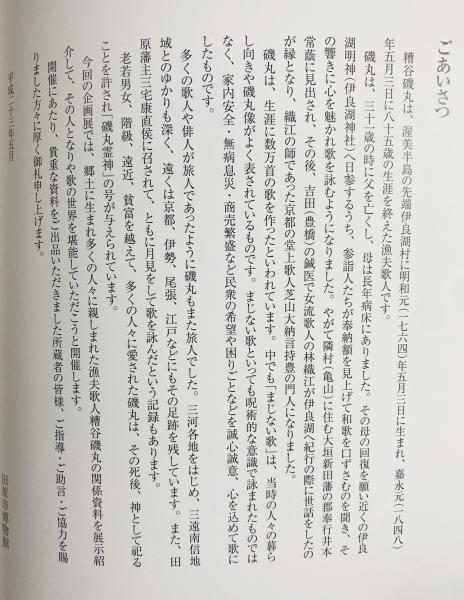 ごあいさつ
糟谷磯丸は、渥美半島の先端伊良湖村に明和元(一七六四)年五月三日に生まれ、嘉永元(一八四八)
年五月三日に八十五歳の生涯を終えた漁夫歌人です。
磯丸は、三十一歳の時に父を亡くし、母は長年病床にありました。その母の回復を願い近くの伊良
湖明神(伊良湖神社)へ日参するうち、参詣人たちが奉納額を見上げて和歌を口ずさむのを聞き、そ
の響きに心を魅かれ歌を詠むようになりました。やがて隣村(亀山)に住む大垣新田藩の郡奉行井本
常蔭に見出され、その後、吉田(豊橋)の鍼医で女流歌人の林織江が伊良湖へ紀行の際に世話をしたの
が縁となり、織江の師であった京都の堂上歌人芝山大納言持豊の門人になりました。
磯丸は、生涯に数万首の歌を作ったといわれています。中でも「まじない歌」は、当時の人々の暮ら
し向きや磯丸像がよく表されているものです。まじない歌といっても呪術的な意識で詠まれたものでは
なく、家内安全・無病息災・商売繁盛など民衆の希望や困りごとなどを誠心誠意、心を込めて歌に
したものです。
多くの歌人や俳人が旅人であったように磯丸もまた旅人でした。三河各地をはじめ、三遠南信地
域とのゆかりも深く、遠くは京都、伊勢、尾張、江戸などにもその足跡を残しています。また、田
原藩主三宅康直侯に召されて、ともに月見をして歌を詠んだという記録もあります。
老若男女、階級、遠近、貧富を越えて、多くの人々に愛された磯丸は、その死後、神として祀る
ことを許され「磯丸霊神」の号が与えられています。
今回の企画展では、郷土に生まれ多くの人々に親しまれた漁夫歌人糟谷磯丸の関係資料を展示紹
介して、その人となりや歌の世界を堪能していただこうと開催します。
開催にあたり、貴重な資料をご出品いただきました所蔵者の皆様、ご指導・ご助言・ご協力を賜
りました方々に厚く御礼申し上げます。
平成二十三年五月
田原市博物館